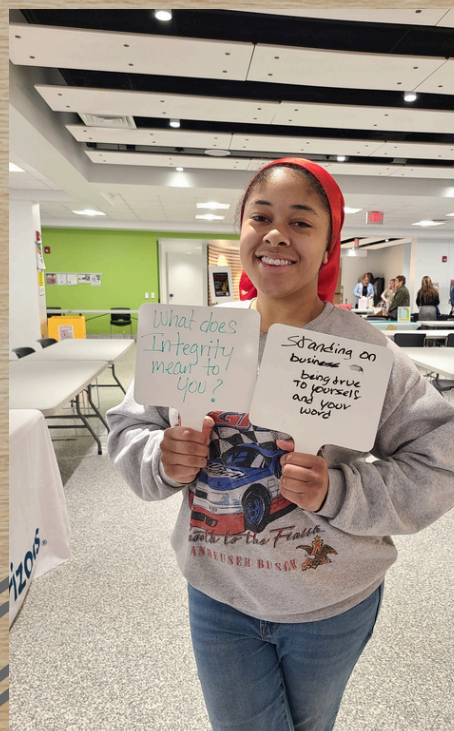 What does
Integrity
mean to
you?
Standing on
business
being true
to yourself
and your
word
to the Finish
ANHEUSER BUSCH